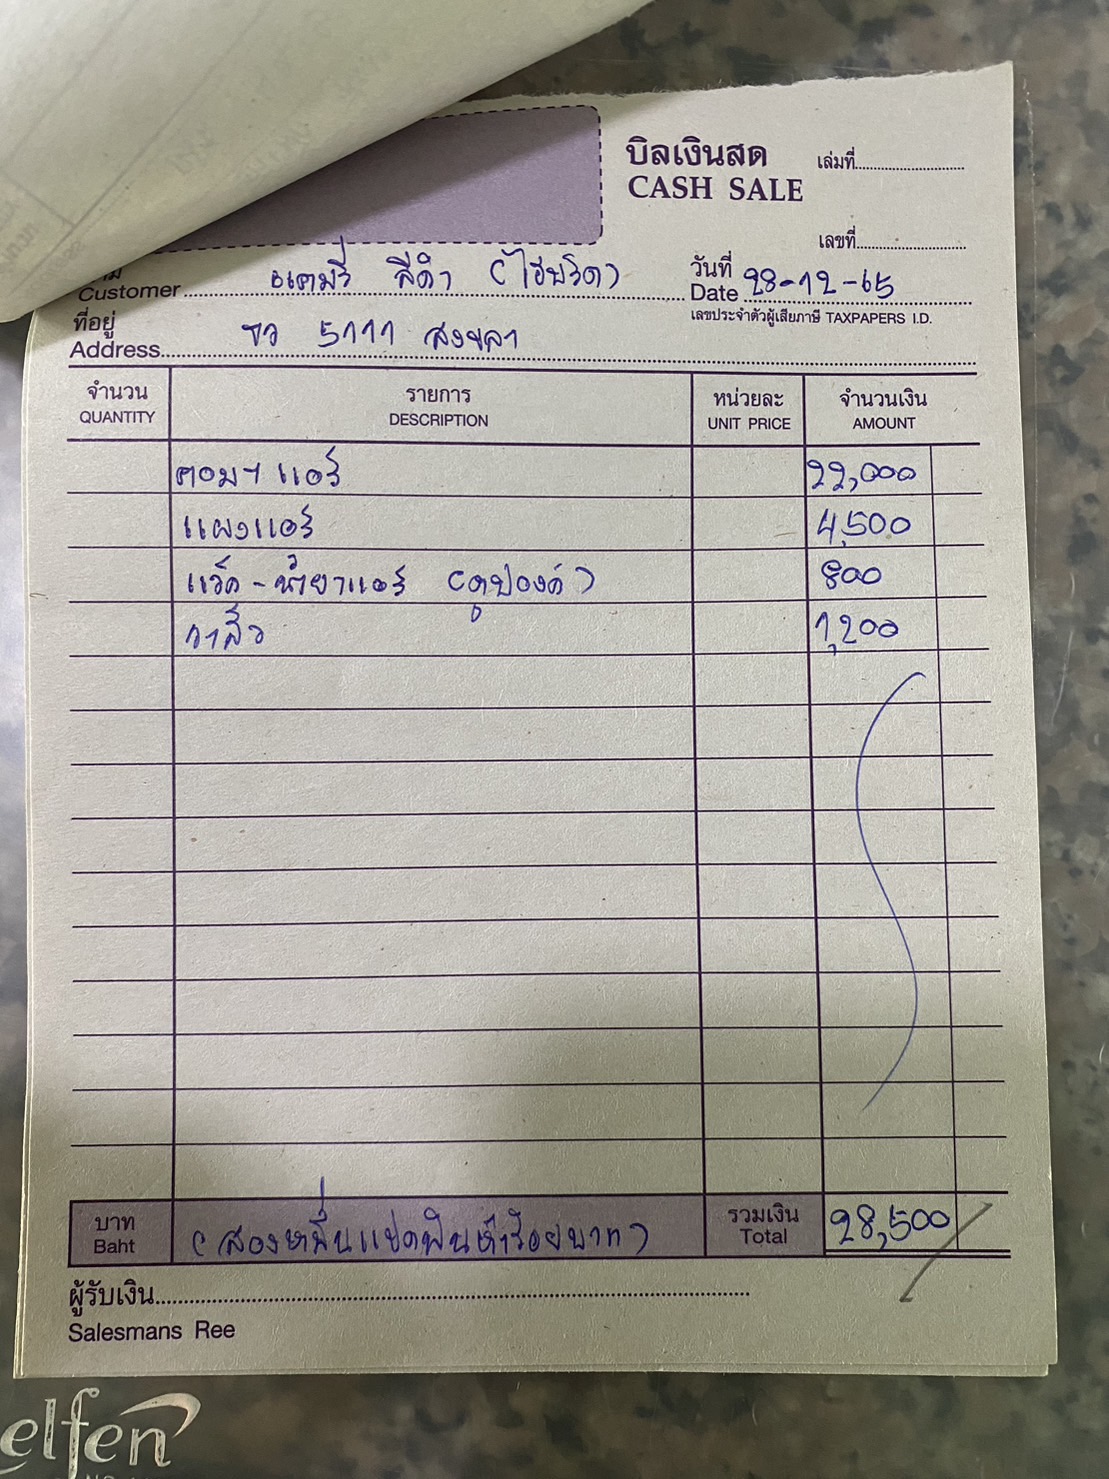 บิลเงินสด
เล่มที่
CASH SALE
เลขที่
Customer แคมรี่ สีดำ (ไฮบริด)
วันที่
Date 28-12-65
ที่อยู่
เลขประจำตัวผู้เสียภาษี TAXPAPERS I.D.
Address ขว 5111 สงขลา
จำนวน รายการ หน่วยละ จำนวนเงิน
QUANTITY DESCRIPTION UNIT PRICE AMOUNT
คอมฯ แอร์ 22,000
แผงแอร์ 4,500
แว็ค - น้ำยาแอร์ (ดูปองค์) 800
วาล์ว 1,200
บาท รวมเงิน
Baht (สองหมื่นแปดพันห้าร้อยบาท) Total 28,500
ผู้รับเงิน
Salesmans Ree
elfen